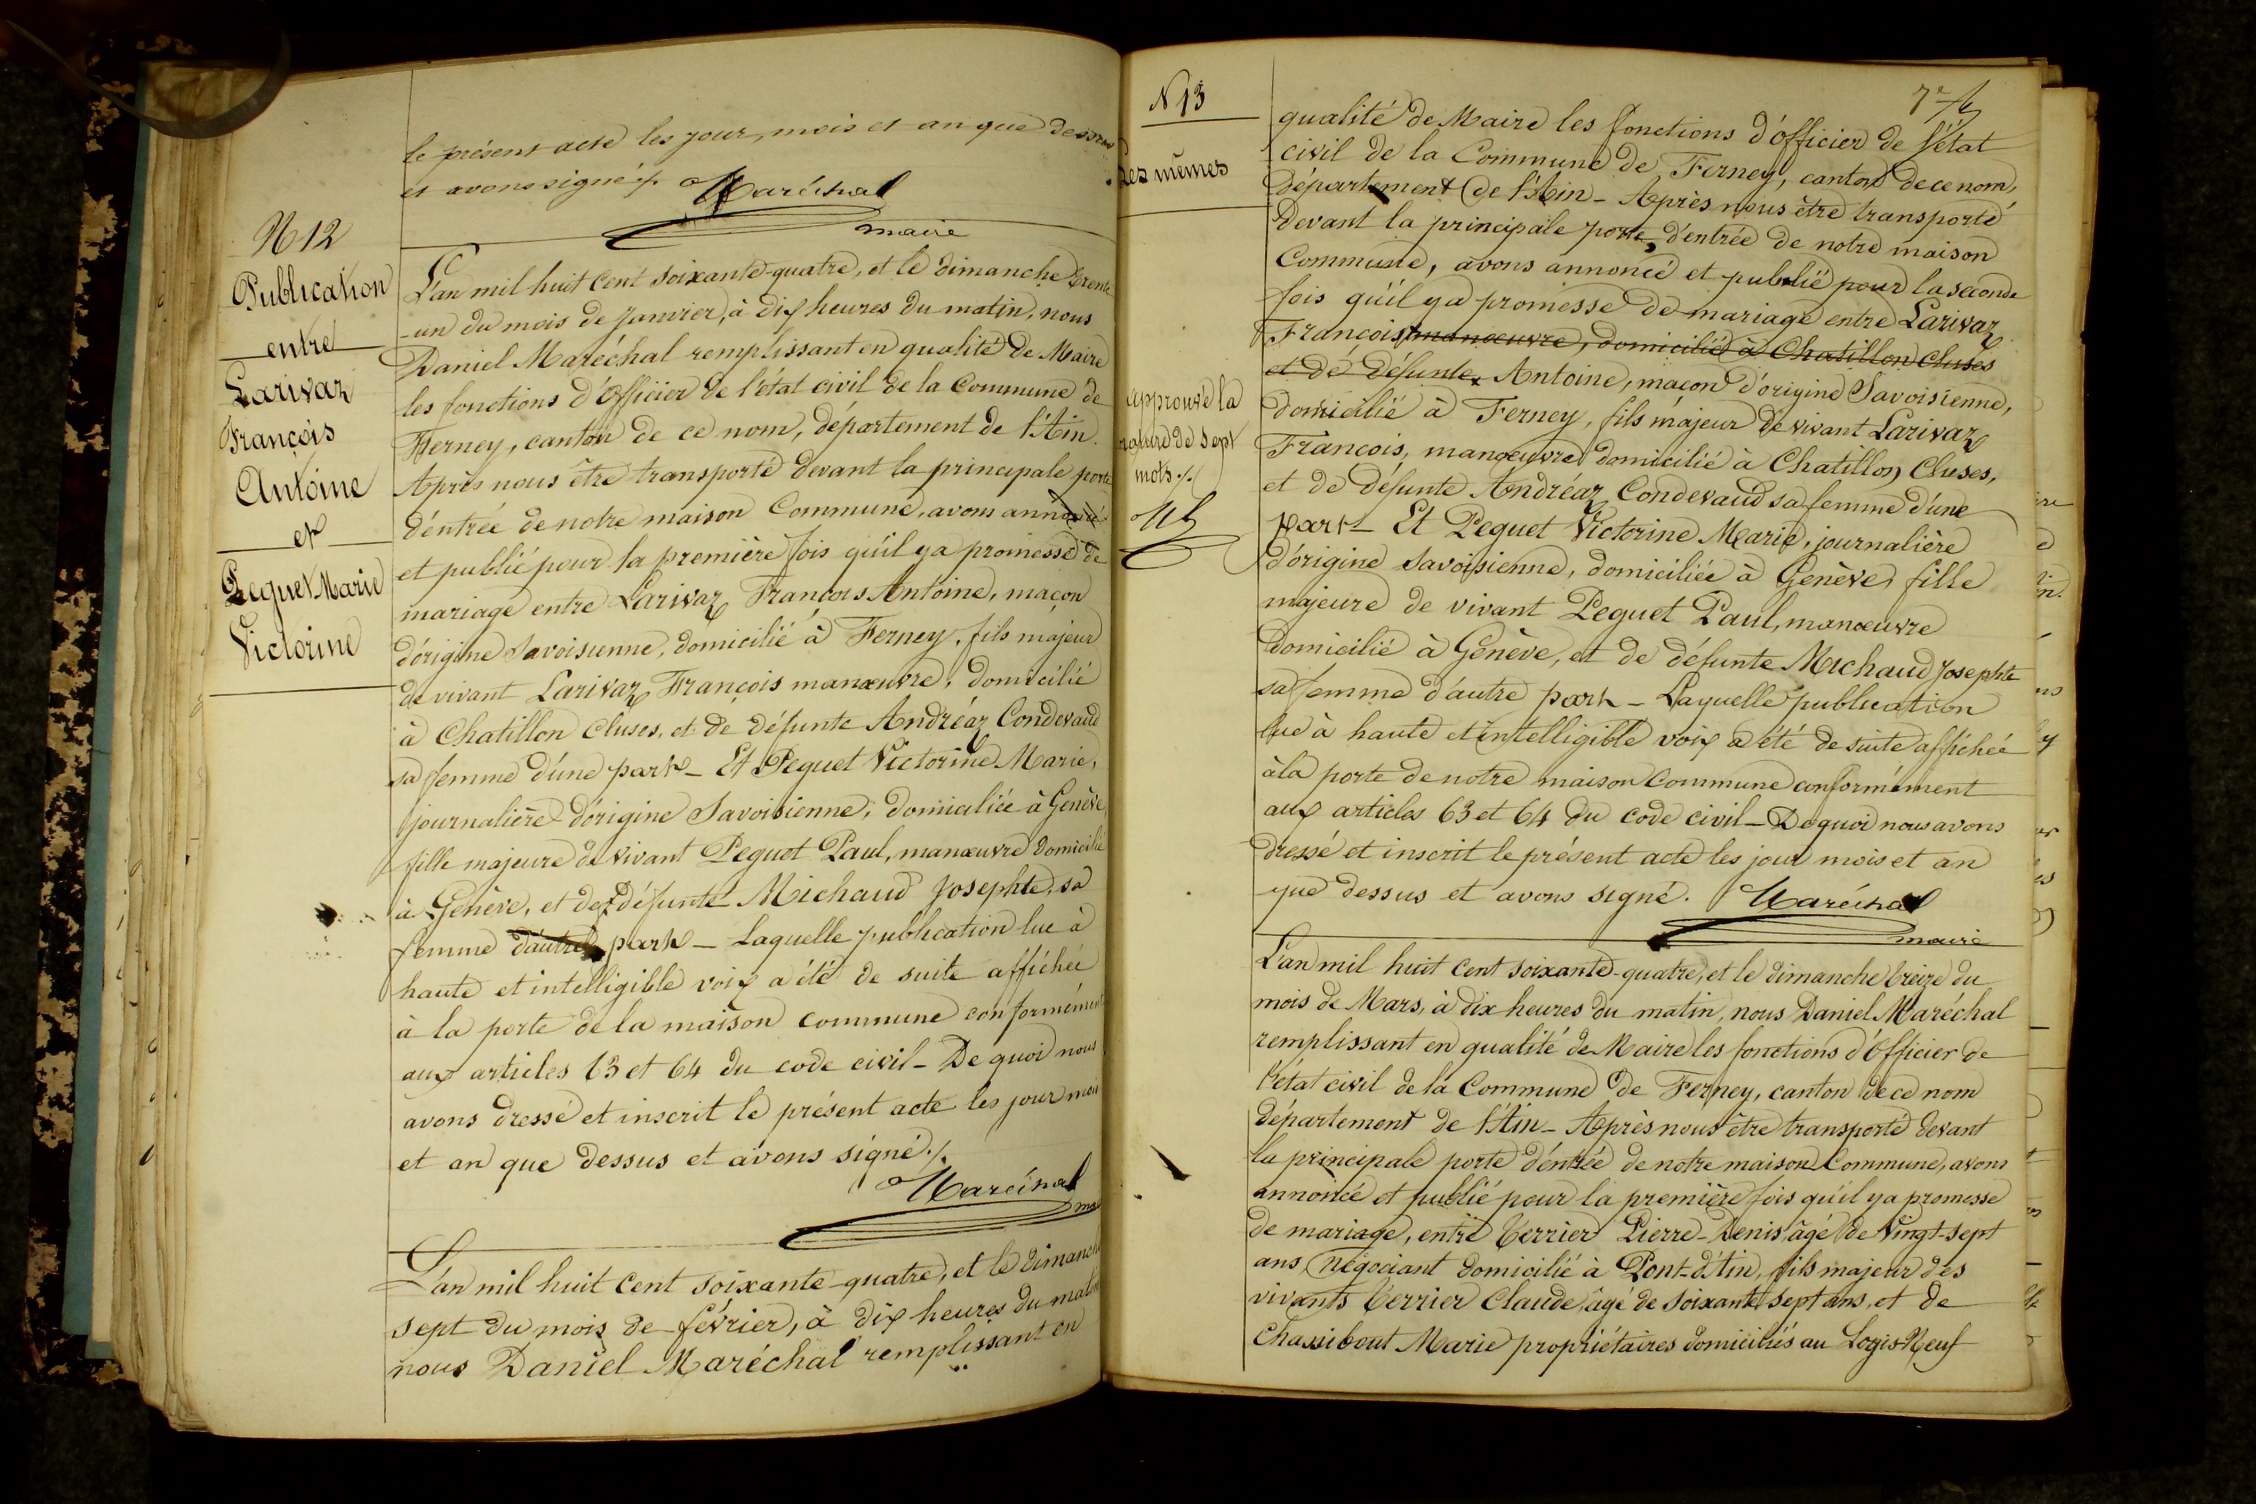 le présent acte les jour, mois et an que dessus
et avons signé ./. Maréchal
maire
N 12
Publication
entre
Larivaz
François
Antoine
et
Peguet Marie
Victorine
L'an mil huit cent soixante-quatre, et le dimanche trente
-un du mois de Janvier, à dix heures du matin, nous
Daniel Maréchal remplissant en qualité de Maire
les fonctions d'Officier de l'état civil de la Commune de
Ferney, canton de ce nom, département de l'Ain.
Après nous être transporté devant la principale porte
d'entrée de notre maison Commune, avons annoncé
et publié pour la première fois qu'il y a promesse de
mariage entre Larivaz François Antoine, maçon
d'origine Savoisienne, domicilié à Ferney, fils majeur
de vivant Larivaz François manœuvre, domicilié
à Chatillon Cluses, et de défunte Andréaz Condevaud
sa femme d'une part – Et Peguet Victorine Marie,
journalière d'origine Savoisienne, domiciliée à Genève
fille majeure de vivant Peguet Paul, manœuvre domicilié
à Genève, et de défunte Michaud Josephte, sa
femme d'autre part – Laquelle publication lue à
haute et intelligible voix a été de suite affichée
à la porte de la maison commune conformément
aux articles 63 et 64 du code civil – De quoi nous
avons dressé et inscrit le présent acte les jour mois
et an que dessus et avons signé ./.
Maréchal
maire
L'an mil huit cent soixante-quatre, et le dimanche
sept du mois de février, à dix heures du matin
nous Daniel Maréchal remplissant en
N 13
Les mêmes
approuvé la
rature de sept
mots ./.
7
qualité de Maire les fonctions d'Officier de l'état
civil de la Commune de Ferney, canton de ce nom,
département de l'Ain – Après nous être transporté
devant la principale porte, d'entrée de notre maison
Commune, avons annoncé et publié pour la seconde
fois qu'il y a promesse de mariage entre Larivaz
François manœuvre, domicilié à Chatillon Cluses
et de défunte Antoine, maçon d'origine Savoisienne,
domicilié à Ferney, fils majeur de vivant Larivaz
François, manœuvre domicilié à Chatillon Cluses,
et de défunte Andréaz Condevaud sa femme d'une
part – Et Peguet Victorine Marie, journalière
d'origine Savoisienne, domiciliée à Genève, fille
majeure de vivant Peguet Paul, manœuvre
domicilié à Genève, et de défunte Michaud Josephte
sa femme d'autre part – Laquelle publication
lue à haute et intelligible voix a été de suite affichée
à la porte de notre maison Commune conformément
aux articles 63 et 64 du code civil – De quoi nous avons
dressé et inscrit le présent acte les jour mois et an
que dessus et avons signé. Maréchal
maire
L'an mil huit cent soixante-quatre, et le dimanche treize du
mois de Mars, à dix heures du matin, nous Daniel Maréchal
remplissant en qualité de Maire les fonctions d'Officier de
l'état civil de la Commune de Ferney, canton de ce nom
département de l'Ain – Après nous être transporté devant
la principale porte d'entrée de notre maison Commune, avons
annoncé et publié pour la première fois qu'il y a promesse
de mariage, entre Terrier Pierre-Denis âgé de Vingt-sept
ans, négociant domicilié à Pont-d'Ain, fils majeur des
vivants Terrier Claude, âgé de soixante sept ans, et de
Chassibout Marie propriétaires domiciliés au Logis-Neuf